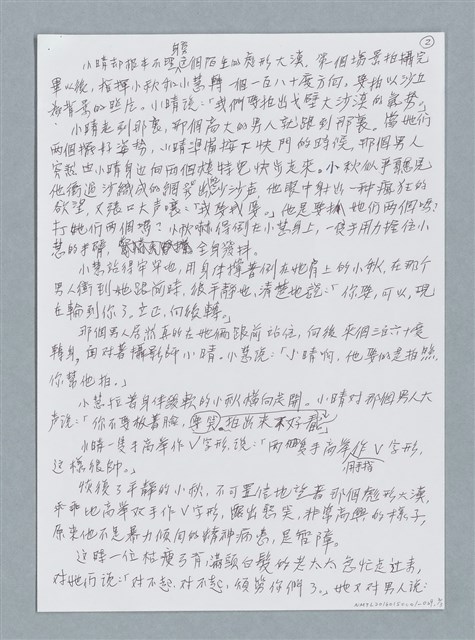 ②
小晴却根本不理會這個陌生的彪形大漢，眾個場景拍攝完
畢以後，指揮小秋和小慧轉一個一百八十度方向，要拍以沙丘
為背景的照片。小晴說：「我們要拍出戈壁大沙漠的氣勢」
小晴走到那裏，那個高大的男人就跟到那裏。當她們
兩個擺好姿勢，小晴準備按下快門的時候，那個男人
突然由小晴身邊向兩個模特兒快步走來。小秋似乎看見
他眼中射出一種瘋狂的
欲望，又張口大聲嚷：「我要我要。」他是要抓她們兩個嗎？
打她們兩個嗎？小秋嚇得倒在小慧身上，一隻手用力握住小
慧的手臂，全身發抖。
小慧站得牢牢地，用身體撐著倒在她肩上的小秋，在那個
男人衝到她跟前時，很平靜地，清楚地說：「你要，可以，現
在輪到你了。立正，向後轉。」
那個男人居然真的在她倆跟前站住，向後來個三百六十度
轉身，面對著攝影師小晴。小慧說：「小晴啊，他要的是拍照，
你幫他拍。」
小慧拉著身體發軟的小秋橫向走開。小晴對那個男人大
声說：「你不要板著臉，要笑，拍出來才好看」
小晴一隻手高舉作V字形，說：「兩隻手高舉作V字形，
用手指
這樣很帥。」
恢復了平靜的小秋，不可置信地望著那個彪形大漢，
乖乖地高舉双手作V字形，露出憨笑，非常高興的樣子，
原來他不是暴力傾向的精神病患，是智障。
這時一位枯瘦弓背，滿頭白髮的老太太急忙走过來，
對她們說：「對不起，對不起，煩勞你們了。」她又對男人說：